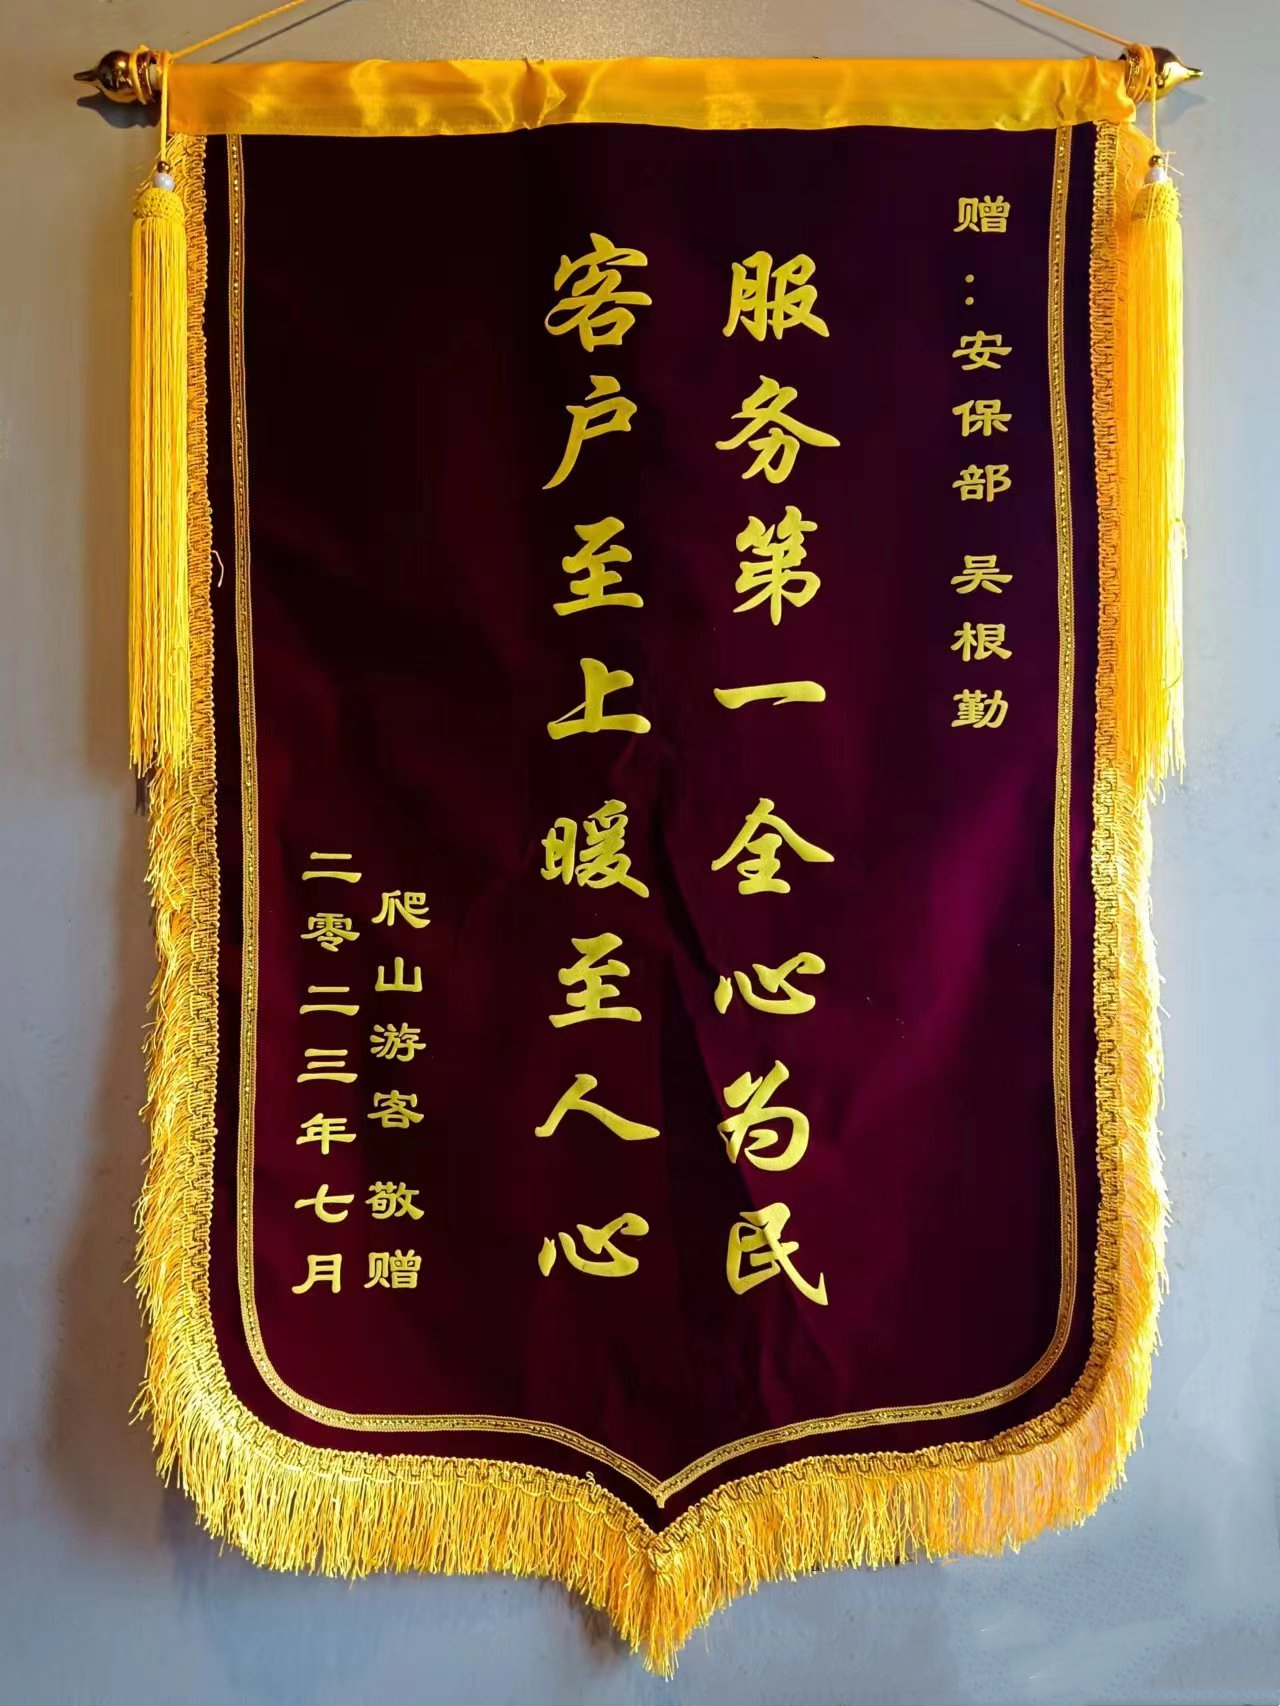 赠：安保部 吴根勤
服务第一全心为民
客户至上暖至人心
爬山游客 敬赠
二零二三年七月